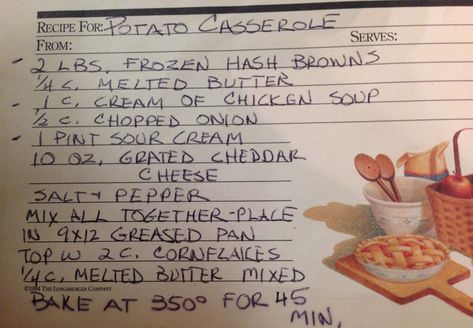 RECIPE FOR: POTATO CASSEROLE
FROM: SERVES:
- 2 LBS. FROZEN HASH BROWNS
1/4 C. MELTED BUTTER
- 1 C. CREAM OF CHICKEN SOUP
1/2 C. CHOPPED ONION
- 1 PINT SOUR CREAM
10 OZ. GRATED CHEDDAR
CHEESE
SALT + PEPPER
MIX ALL TOGETHER-PLACE
IN 9X12 GREASED PAN
TOP W 2 C. CORNFLAKES
1/4 C. MELTED BUTTER MIXED
©1994 THE LONGABERGER COMPANY
BAKE AT 350° FOR 45
MIN.